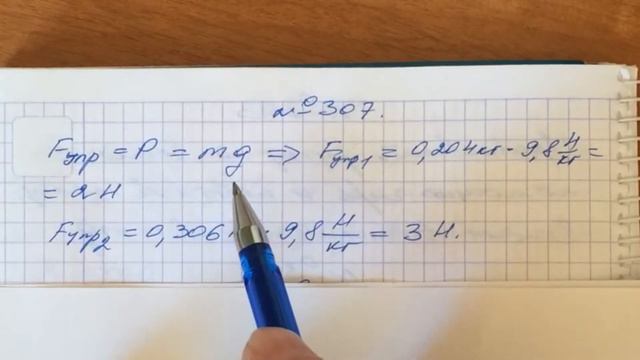 №307.
Fупр = P = mg => Fупр1 = 0,204кг · 9,8 Н/кг =
= 2Н
Fупр2 = 0,306 · 9,8 Н/кг = 3 Н.